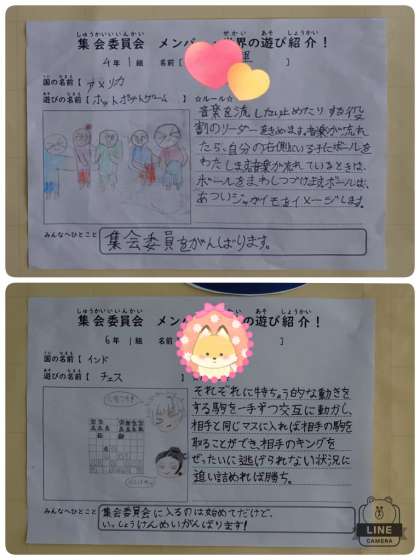 しゅうかいいいんかい せかい あそ しょうかい
集会委員会 メンバー 世界の遊び紹介！
4年1組 名前【 】
国の名前【 アメリカ
遊びの名前【 ホットポテトゲーム
☆ルール☆
音楽を流したり止めたりする役
割のリーダーをきめます。音楽が流れ
たら、自分の右側にいる子にボールを
わたします。音楽が流れているときは、
ボールをまわしつづけます。ボールは、
あついジャガイモをイメージします。
みんなへひとこと
集会委員をがんばります。
しゅうかいいいんかい あそ しょうかい
集会委員会 メン の遊び紹介！
6年 1組 名前
国の名前【 インド
遊びの名前【 チェス
それぞれに特ちょう的な動きを
する駒を一手ずつ交互に動かし、
相手と同じマスに入れば相手の駒を
取ることができ、相手のキングを
ぜったいに逃げられない状況に
追い詰めれば勝ち。
みんなへひとこと
集会委員会に入るのは始めてだけど、
いっしょうけんめいがんばります!
LINE
CAMERA